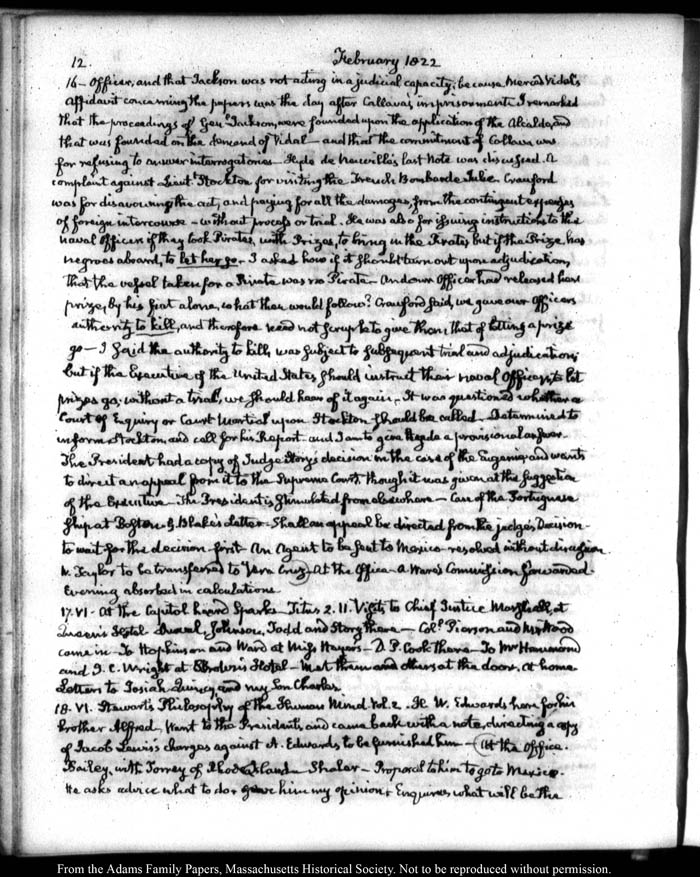 12. February 1822
16 — Officer, and that Jackson was not acting in a judicial capacity; because Merced Vidal's
Affidavit concerning the papers was the day after Callava's imprisonment. I remarked
that the proceedings of Genl. Jackson, were founded upon the application of the Alcalde, and
that was founded on the demand of Vidal — and that the commitment of Callava was
for refusing to answer interrogatories — Hyde de Neuville's last Note was discussed. A
complaint against Lieut. Stockton for visiting the French Bombarde Julie. Crawford
was for disavowing the act, and paying for all the damages, from the contingent expenses
of foreign intercourse — without process or trial. He was also for issuing instructions to the
naval officers if they took Pirates, with Prizes, to bring in the Pirates but if the Prize, has
negroes aboard, to let her go. I asked how if it should turn out upon adjudication,
that the vessel taken for a Pirate was no Pirate — And our Officer had released her
prize, by his fiat alone, what then would follow? Crawford said, we gave our Officers
authority to kill, and therefore need not scruple to give them that of letting a prize
go — I said the authority to kill, was subject to subsequent trial and adjudication;
but if the Executive of the United States, should instruct their naval Officers, to let
prizes go, without a trial, we should hear of it again. It was questioned whether a
Court of Enquiry or Court Martial upon Stockton should be called — Determined to
inform Stockton, and call for his Report — and I am to give Hyde a provisional answer.
The President had a copy of Judge Story's decision in the case of the Eugenie, and wants
to direct an appeal from it to the Supreme Court, though it was given at the suggestion
of the Executive — The President is stimulated from elsewhere — Case of the Portuguese
Ship at Boston. G. Blake's Letter — Shall an appeal be directed from the judge's Decision —
to wait for the decision first — An Agent to be sent to Mexico — resolved without discussion
W. Taylor to be transferred to Vera Cruz. At the Office — A. Ware's Commission forwarded.
Evening absorbed in calculations.
17. VI. At the Capitol heard Sparks Titus 2. 11. Visits to Chief Justice Marshall, at
Queen's Hotel Duvall, Johnson, Todd and Story there — Coll. Pierson and Mr Wood
came in. To Hopkinson and Ward at Miss Heyer's — D. P. Cook there — To Mr Hammond
and J. C. Wright at Brown's Hotel — met them and others at the door. At home
Letters to Josiah Quincy, and my Son Charles.
18. VI. Stewart's Philosophy of the Human Mind Vol. 2. H. W. Edwards here for his
brother Alfred. Went to the President's, and came back with a note, directing a copy
of Jacob Lewis's charges against A. Edwards, to be furnished him — At the Office.
Bailey, with Torrey of Rhode Island — Shaler — Proposal to him to go to Mexico.
He asks advice what to do. gave him my opinion. Enquires what will be the
From the Adams Family Papers, Massachusetts Historical Society. Not to be reproduced without permission.